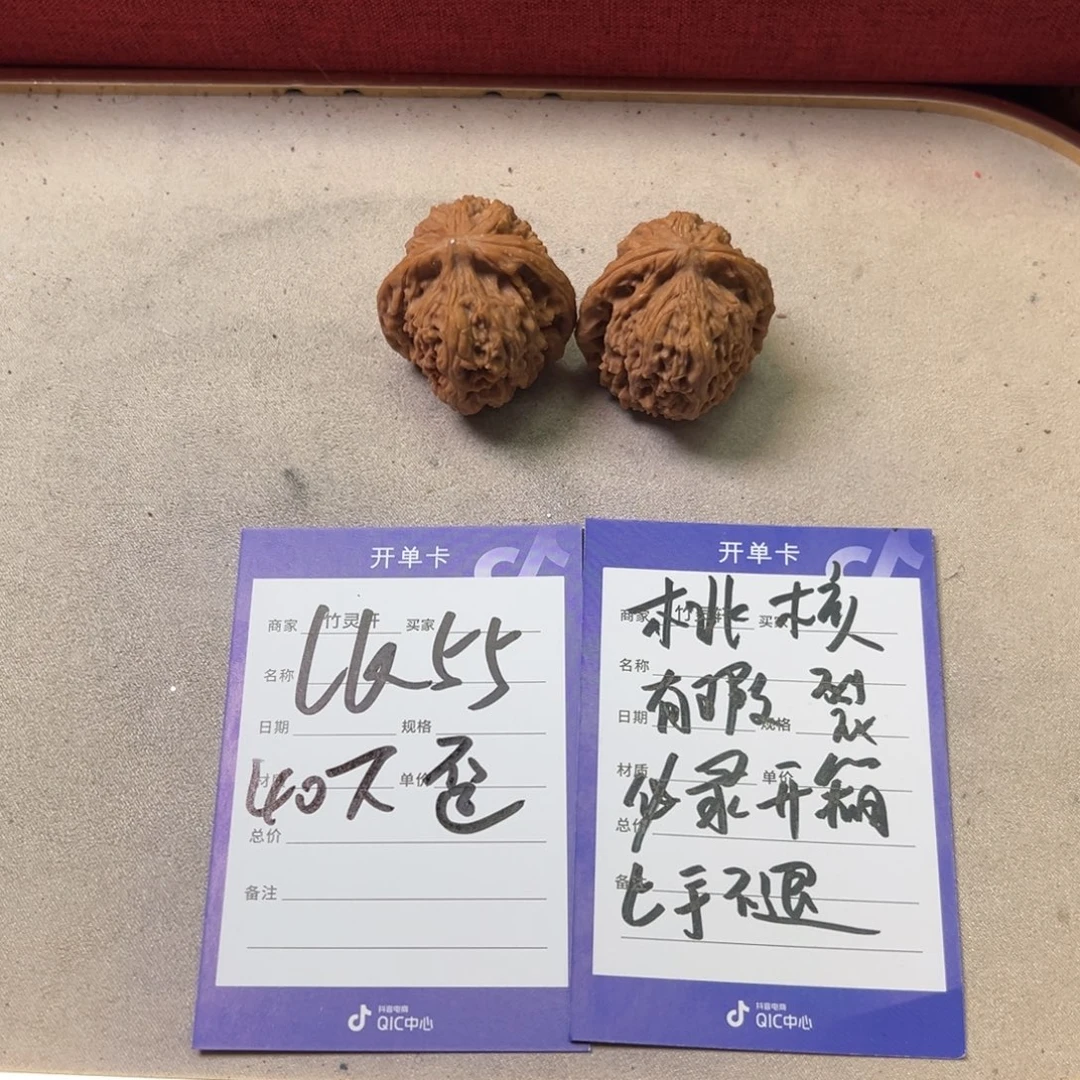 开单卡
商家 竹灵轩 买家
名称
日期 规格
材质 单价
总价
备注
55
40不歪
抖音电商
QIC中心
开单卡
商家 竹灵轩 买家
名称
日期 规格
材质 单价
总价
备注
桃核
有瑕 裂
必录开箱
上手不退
抖音电商
QIC中心